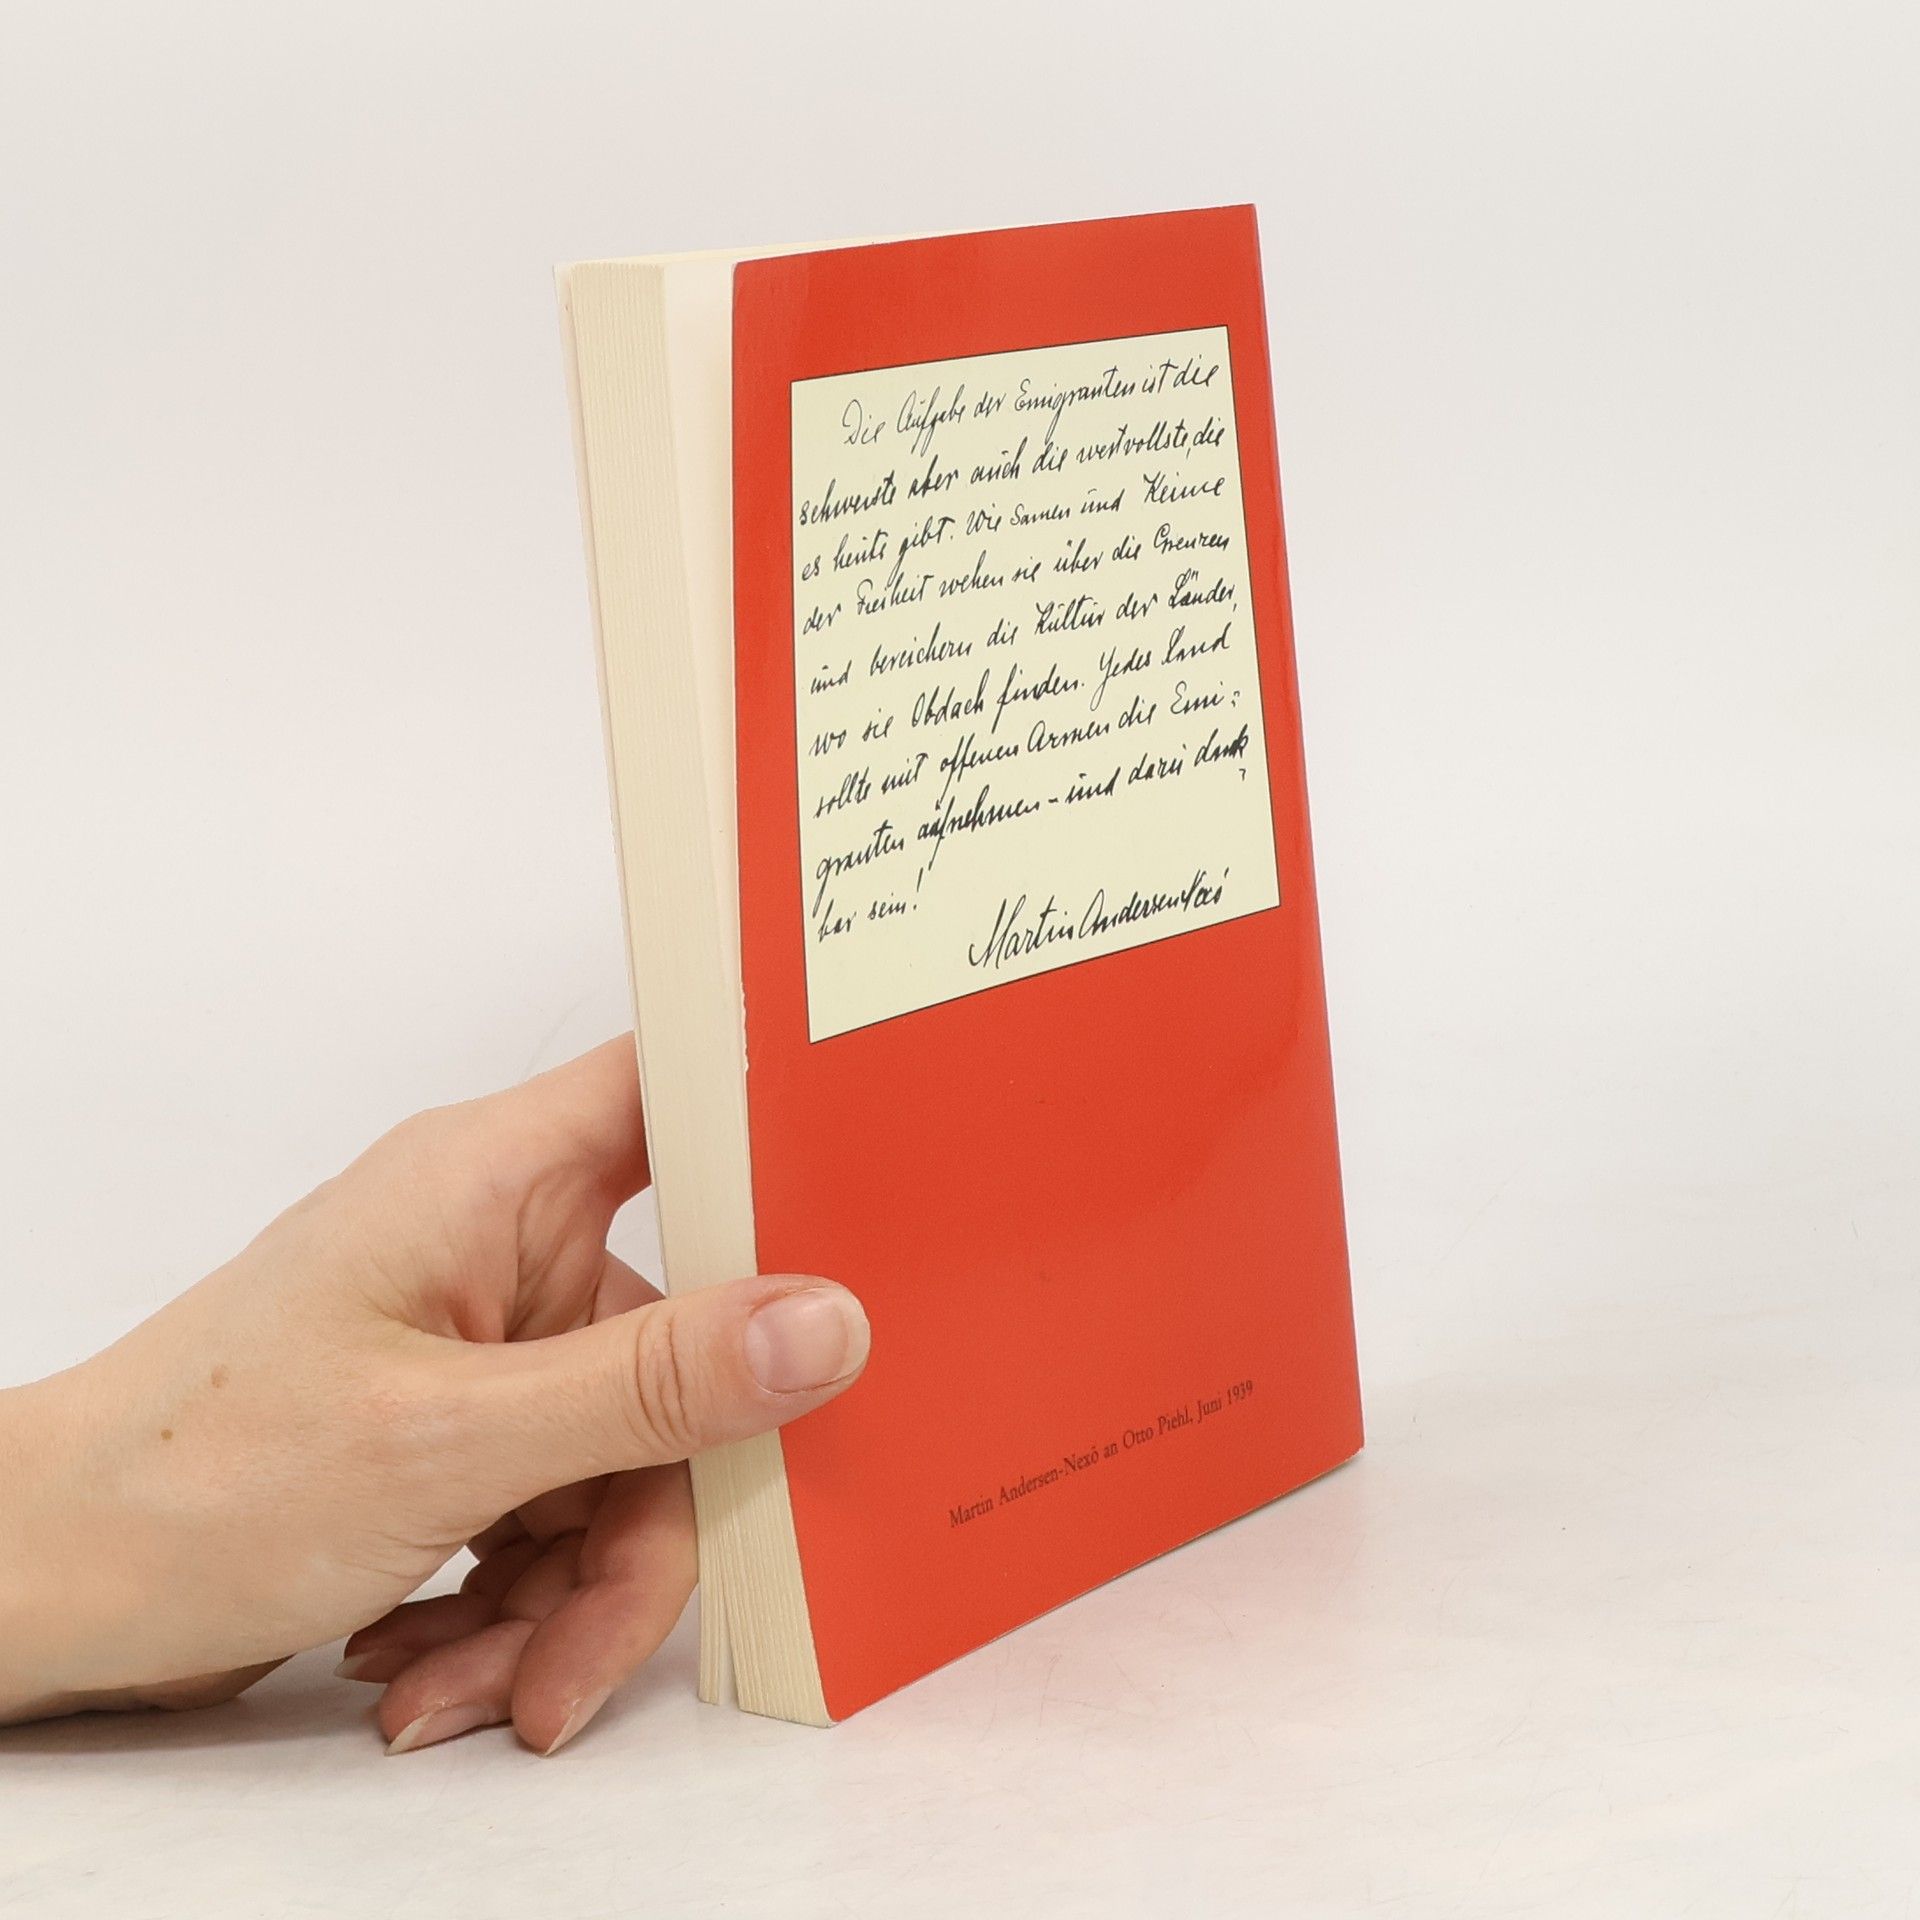 Die Aufgabe der Emigranten ist die
schwerste aber auch die wertvollste, die
es heute gibt. Wie Samen und Keime
der Freiheit wehen sie über die Grenzen
und bereichern die Kultur der Länder,
wo sie Obdach finden. Jedes Land
sollte mit offenen Armen die Emi-
granten aufnehmen - und dazu dank-
bar sein!
Martin Andersen Nexö
Martin Andersen-Nexö an Otto Piehl, Juni 1939